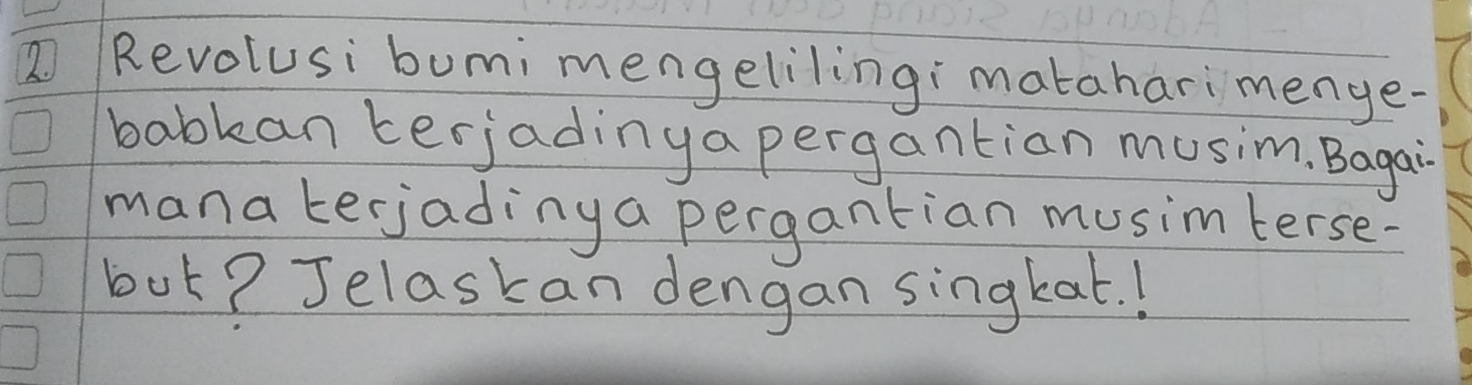 2. Revolusi bumi mengelilingi matahari menye-
babkan terjadinya pergantian musim. Bagai-
mana terjadinya pergantian musim terse-
but? Jelaskan dengan singkat.!